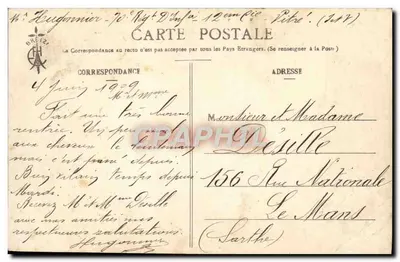 Hugonnier 70e Rgt D'Infie 12eme Cie Vitré (I&V)
CARTE POSTALE
La Correspondance au recto n'est pas acceptée par tous les Pays Étrangers. (Se renseigner à la Poste)
CORRESPONDANCE
ADRESSE
4 Juin 1909
Mr et Mme
Fait une très bonne
rentrée. Un peu
aux cheveux le lendemain
mais c'est passé depuis.
Bien vilain temps depuis
Mardi.
Recevez M et Mme Désille
avec mes amitiés mes
respectueuses salutations.
Hugonnier
Monsieur et Madame
Désille
156 Rue Nationale
Le Mans
(Sarthe)